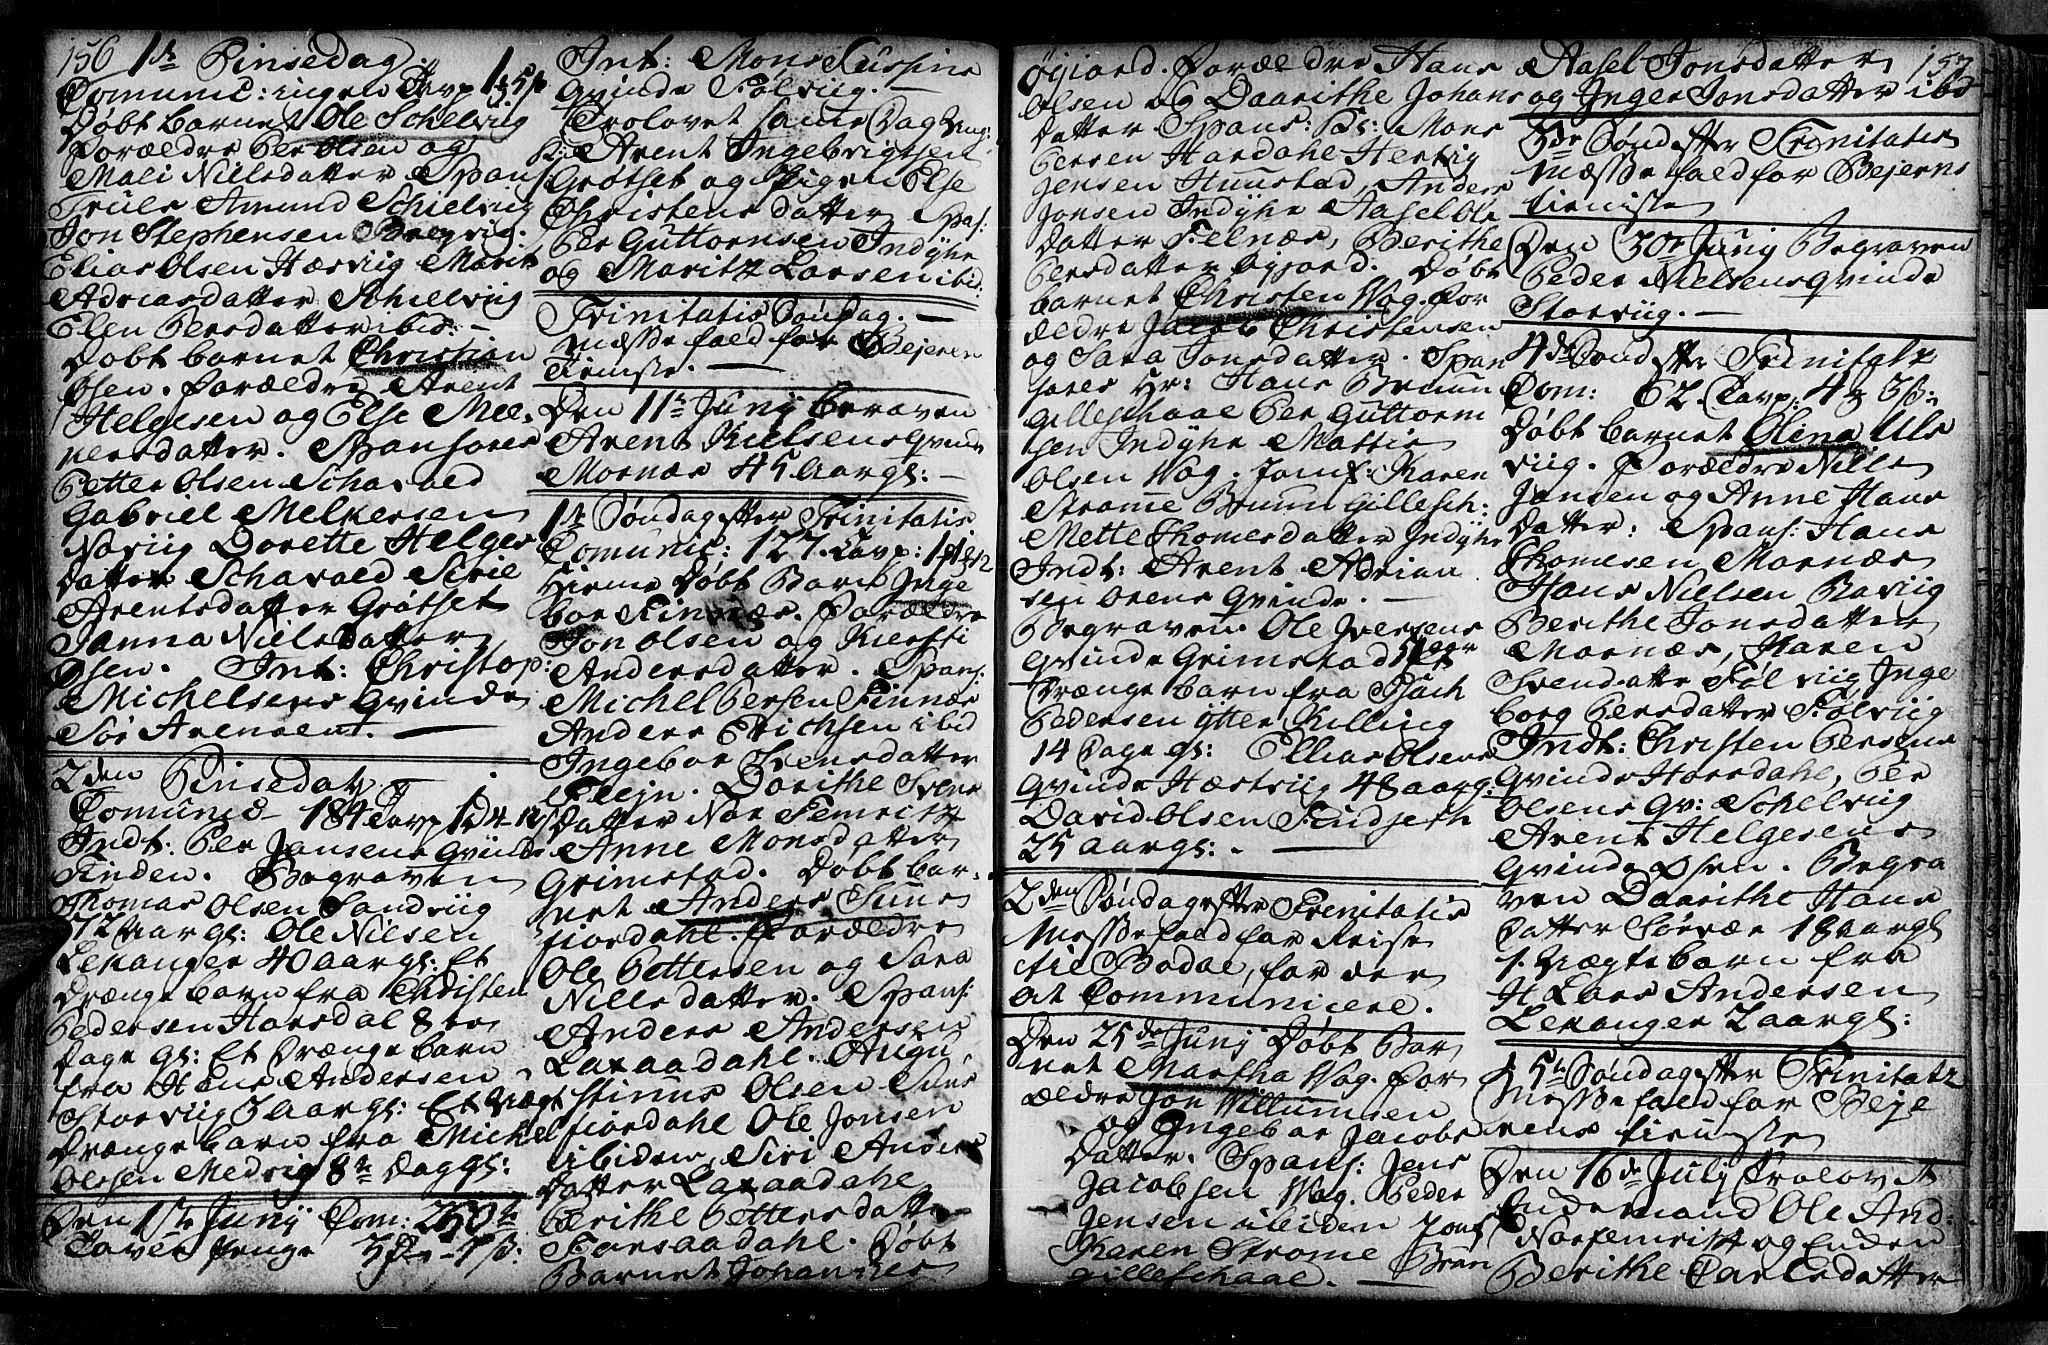 156 1ste Pinsedag.
Comunic: ingen Tavp 1 5
Døbt barnet Ole Schelviig
Forældre Per Olsen og
Mali Nielsdatter Spans:
Truls Amund Schielviig
Jon Stephensen
Elias Olsen Hæsviig Marit
Adriasdatter Schielviig
Elen Persdatter ibid: –
Døbt barnet Christian
Øsen. Forældre Arent
Helgesen og Else Mel-
chersdatter. Spansores
Petter Olsen Schavold
Gabriel Melkersen
Naviig Dorette Helges
datter Schavold Sirie
Arentsdatter Grøtset
Janna Nielsdatter
Øsen. Int: Christop:
Michelsens Qvinde
Sør Arensent. –
2den Pinsedag
Comunic 184 Tavp 1 4 12
Indt: Per Jansens Qvinde
Finden. Begraven
Thomas Olsen Sandviig
72 Aargl: Ole Nilsen
Lekanger 40 aargl: Et
Drænge barn fra Christen
Pedersen Horsdal 8te
Dage gl: Et Drængebarn
fra Hans Andersen
Storviig 3 Aargl: Et Vægt
Drænge barn fra Michel
Olesen Medviig 8te Dag gl:
Den 1ste Junij Com: 250
Tavle Penge
Int: Mons
Qvinde Følviig. –
Trolovet samme Dag Ung:
Arent Ingebrigtsen
Grøtset og Pigen Else
Christensdatter Spas:
Per Guttormsen Indyhr
og Maritz Larsen ibid.
Trinitatis Søndag. –
Mæsse fald for Bejeren
Tieniste. –
Den 11te Junij beraven
Arent Qvinde
Mornæs 45 Aargl: –
1ste Søndag efter Trinitatis
Comunic: 127. Tavp: 1
Hieme Døbt Barnet Inge
bor Finnæs. Forældre
Jon Olsen og Kiersti
Andersdatter. Spans:
Michel Persen Finnæs
Anders Erichsen ibid
Ingebor Svensdatter
Fleyn. Dorithe Svens
datter Nor Femriz
Anne Monsdatter
Grimstad. Døbt bar-
net Anders Suns
fiordahl. Forældre
Ole Pettersen og Sara
Nillsdatter. Spans:
Anders Andersen
Laxaadahl. Augu
stinus Olsen Suns
fiordahl Ole Jonsen
ibidem, Siri Anders
datter Laxaadahl
Berithe Pettersdatter
Forsaadahl. Døbt
Barnet Johannes
Øgiord. Forældre Hans
Olsen og Daarithe Johans
datter. Spans: Hr: Mons
Persen Hardahl Hertvig
Jensen Huustad, Anders
Jonsen Indyhr Aasel Ole
datter Felnæs, Berithe
Persdatter Øgjord. Døbt
barnet Christen Wog. For
ældre Jacob Christensen
og Sara Jonsdatter. Span
sores Hr: Hans Bruun
Gilleschaal Per Guttorm
sen Indyhr Mattis
Olsen Wog. Jomf: Karen
Strøme Bruun Gillesch:
Mette Thomesdatter Indyhr
Indt: Arent Adrian
sen Qvinde. –
Begraven. Ole Iversens
Qvinde Grimstad
Drænge barn fra
Pedersen Ytter Killing
14 Dage gl: Ellias Olsens
Qvinde Hæstviig 48 aarg:
David Olsen Findseth
25 aargl: . –
2den Søndag efter Trenitatis
Messe fald for Reise
til Bodøe, for der
at Communicere.
Den 25de Junij Døbt Bar
net Martha Wog. For
ældre Jon Willumsen
og Ingebor Jacobs
datter. Spans: Jens
Jacobsen Wog. Peder
Jensen ibiden Jomf
Karen Strome Brun
Gilleschaal. –
Aasel Jonsdatter 157
og Inger Jonsdatter ibid
3de Sønd efter Trenitatis
Mæsse fald for Bejerns
tieniste
Den 30te Junij Begraven
Peder Nielsens Qvinde
Storviig. –
4de Sønd efter Trenitatz
Com: 62. Tavp: 4 3
Døbt barnet Olina Uls
viig. Forældre Nills
Jansen og Anne Hans
datter: Spans: Hans
Thomesen Mornæs
Hans Nielsen Raviig
Berithe Jonsdatter
Mornæs, Karen
Svendatter Følviig Inge
borg Persdatter Følviig
Indt: Christen Persens
Qvinde Horsdahl, Per
Olsens Qv: Schelviig
Arent Helgesens
Qvinde Øsen. Begra
ven Daarithe Hans
datter Sørvær 18 aargl
1. Vægtebarn fra
H Lars Andersen
Lekanger 2 aargl:
5te Søndag efter Trinitatz
Messe fald for Beje
rens tieniste
Den 16de Julij Trolovet
Endemand Ole And:
Norfemrist og Enden
Berithe Carlsdatter